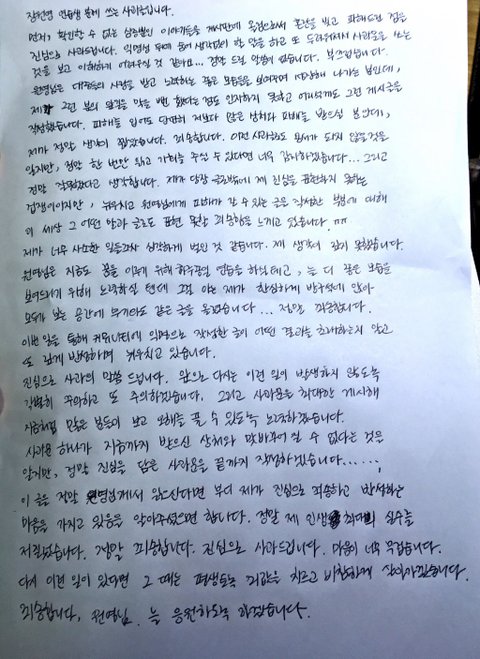 장원영 연습생 분께 쓰는 사과문입니다.
먼저, 확인할 수 없는 심증뿐인 이야기들을 게시판에 올림으로써 혼란을 빚고 피해드린 점을
진심으로 사과드립니다. 익명성 뒤에 숨어 생각없이 한 말을 하고 또 두려워져서 사과문을 쓰는
것을 보고 이해하기 어려우실 것 같아요... 정말 드릴 말씀이 없습니다. 부끄럽습니다.
원영님은 대중들의 사랑을 받고 노력하는 좋은 모습들을 보여주며 성장해 나가는 분인데,
제가 그런 분의 앞길을 막는 밴 했다는 점도 인지하지 못하고 어리석게도 그런 게시글을
작성했습니다. 피해를 입어도 당연히 저보다 많은 상처와 피해를 받으실 분인데,
제가 정말 생각이 짧았습니다. 죄송합니다. 이런 사과로도 용서가 되지 않을 것을
알지만, 정말 한 번만 읽고 기회를 주실 수 있다면 너무 감사하겠습니다... 그리고
정말 잘못했다고 생각합니다. 제가 당장 글로밖에 제 진심을 표현하지 못하는
겁쟁이이지만, 뉘우치고 원영님에게 피해가 갈 수 있는 글을 작성한 점에 대해
이 세상 그 어떤 말과 글로도 표현 못할 죄송함을 느끼고 있습니다. ㅠㅠ
제가 너무 사소한 일들갖다 심각하게 벌인 것 같습니다. 제 생각이 깊지 못했습니다.
원영님은 지금도 꿈을 이루기 위해 하루종일 연습을 하실테고, 늘 더 좋은 모습을
보여드리기 위해 노력하실 텐데 그걸 아는 제가 한심하게 방구석에 앉아
모두가 보는 공간에 무기와도 같은 글을 올렸습니다... 정말 죄송합니다.
이번 일을 통해 커뮤니티에 익명으로 작성한 글이 어떤 결과를 초래하는지 알고
또 깊게 반성하며 뉘우치고 있습니다.
진심으로 사과의 말씀 드립니다. 앞으로 다시는 이런 일이 발생하지 않도록
각별히 주의하고 또 주의하겠습니다. 그리고 사과문을 최대한 게시해
지금처럼 많은 분들이 보고 오해를 풀 수 있도록 노력하겠습니다.
사과문 하나가 지금까지 받으신 상처와 맞바꾸어질 수 없다는 것을
알지만, 정말 진심을 담은 사과문을 끝까지 작성하겠습니다......,
이 글을 정말 원영님께서 읽으신다면 부디 제가 진심으로 죄송하고 반성하는
마음을 가지고 있음을 알아주셨으면 합니다. 정말 제 인생 최대의 실수를
저질렀습니다. 정말 죄송합니다. 진심으로 사과드립니다. 마음이 너무 무겁습니다.
다시 이런 일이 있다면 그 때는 평생토록 죄값을 치르고 비참하게 살아가겠습니다.
죄송합니다, 원영님. 늘 응원하도록 하겠습니다.